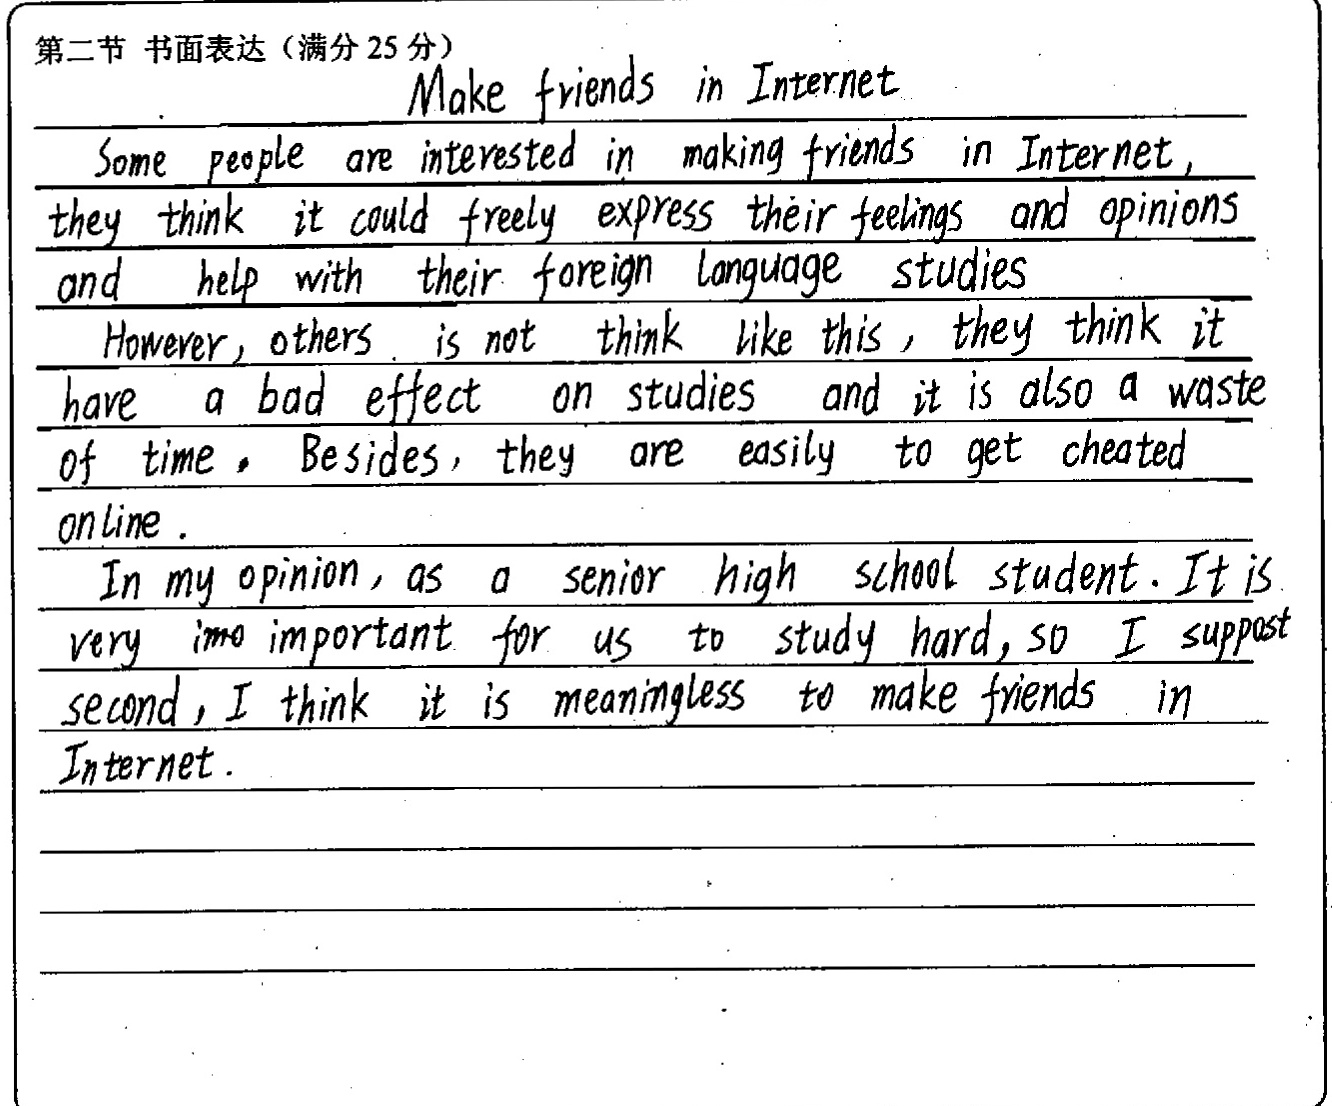 第二节 书面表达（满分 25 分）
Make friends in Internet
Some people are interested in making friends in Internet,
they think it could freely express their feelings and opinions
and help with their foreign language studies
However, others is not think like this, they think it
have a bad effect on studies and it is also a waste
of time. Besides, they are easily to get cheated
online.
In my opinion, as a senior high school student. It is
very imo important for us to study hard, so I suppost
second, I think it is meaningless to make friends in
Internet.